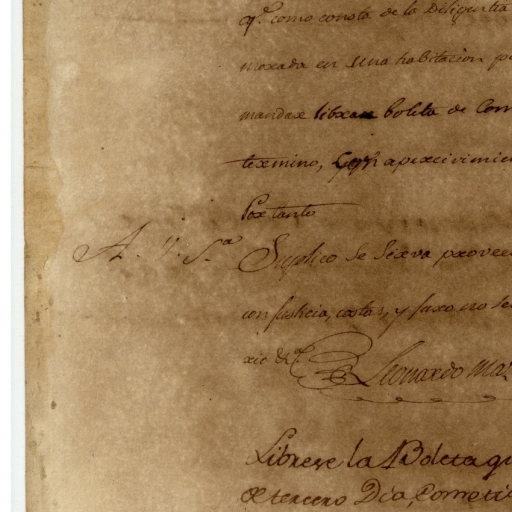 q.e como consta de la Diligentia
morada en una habitacion
mandar librar boleta de Com
termino, con apercivimie
Por tanto
A. V. S.a Suplico se sirva provee
con justicia, costas, y juro no se
Leonardo Mar
Librese la Boleta qu
de tercero Dia, Cometi